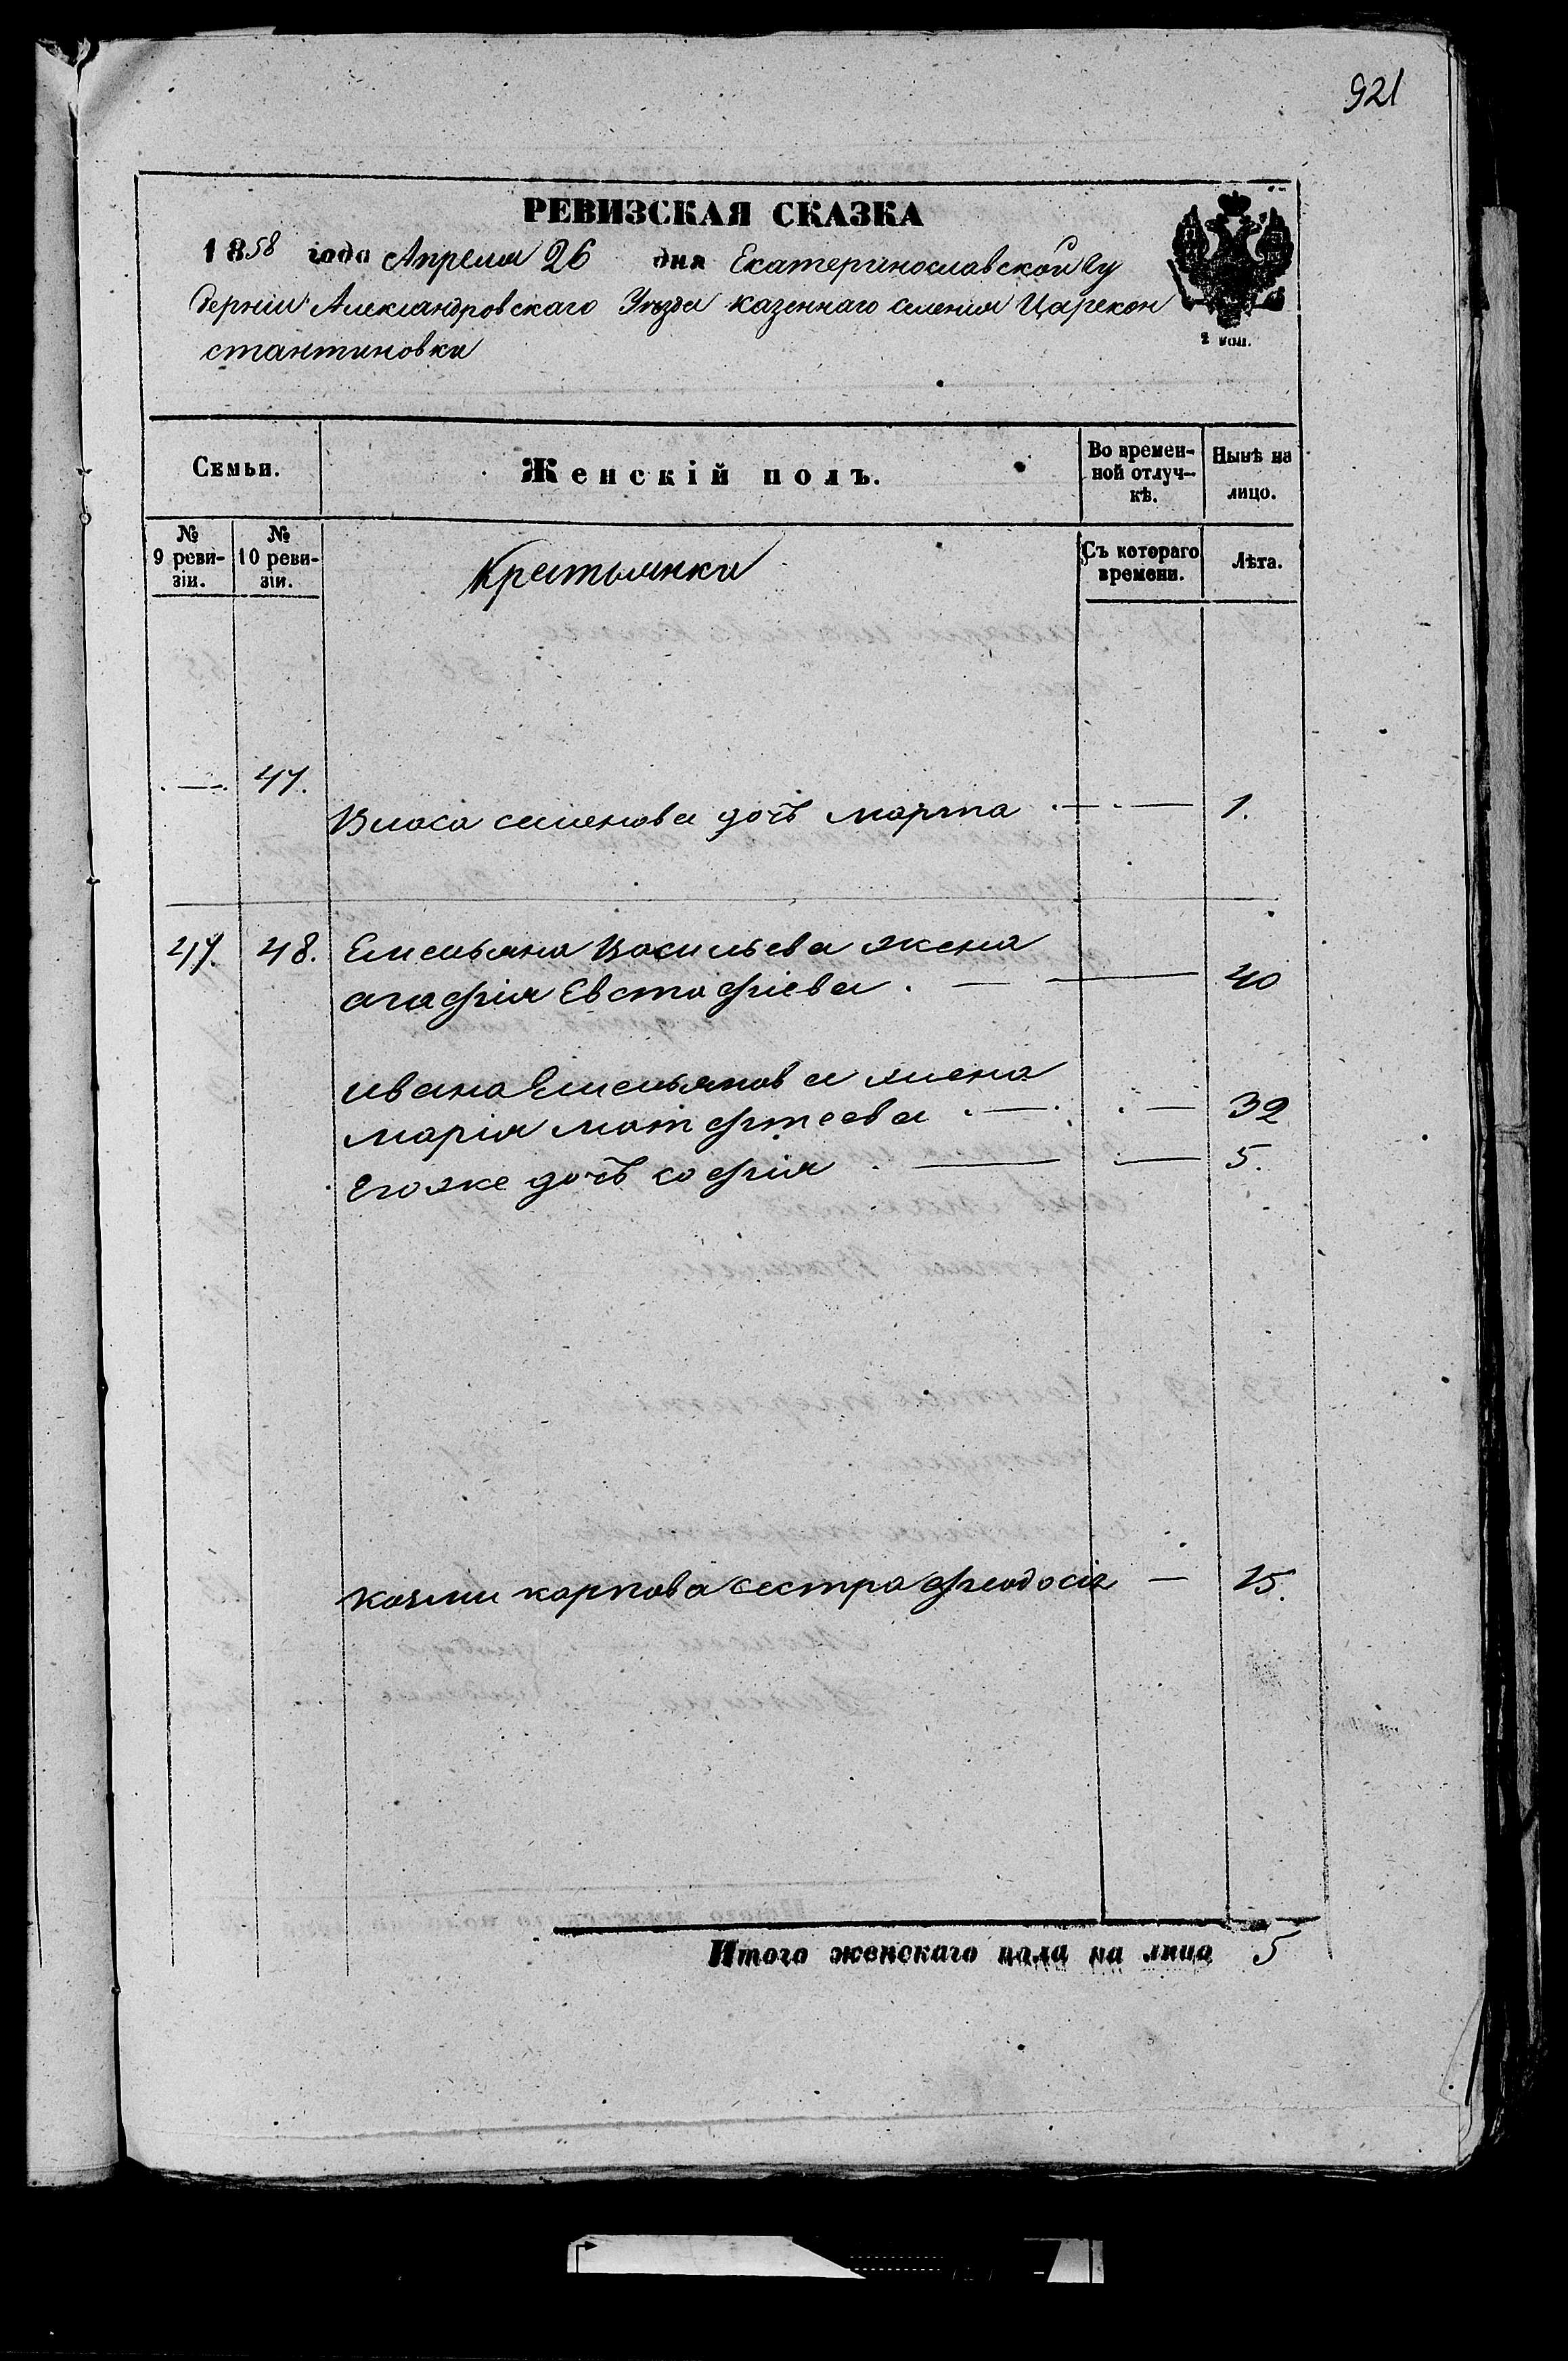 921
РЕВИЗСКАЯ СКАЗКА
1858 года Апреля 26 дня Екатеринославской Гу
берніи Александровскаго Уѣзда казеннаго селения Царекон
стантиновки
2 коп.
Семьи. Женскій полъ. Во времен- Нынѣ на
ной отлуч- лицо.
кѣ.
№ № Съ котораго Лѣта.
9 реви- 10 реви- времени.
зіи. зіи.
Крестьянки
47.
Власа семенова дочь марта 1.
47. 48. Емельяна Васильева жена
агафія Евстафіева 40
ивана Емельянова жена
марія матфтеева 32
Егоже дочь софія 5.
козми карпова сестра феодосія 15.
Итого женскаго пола на лицо 5